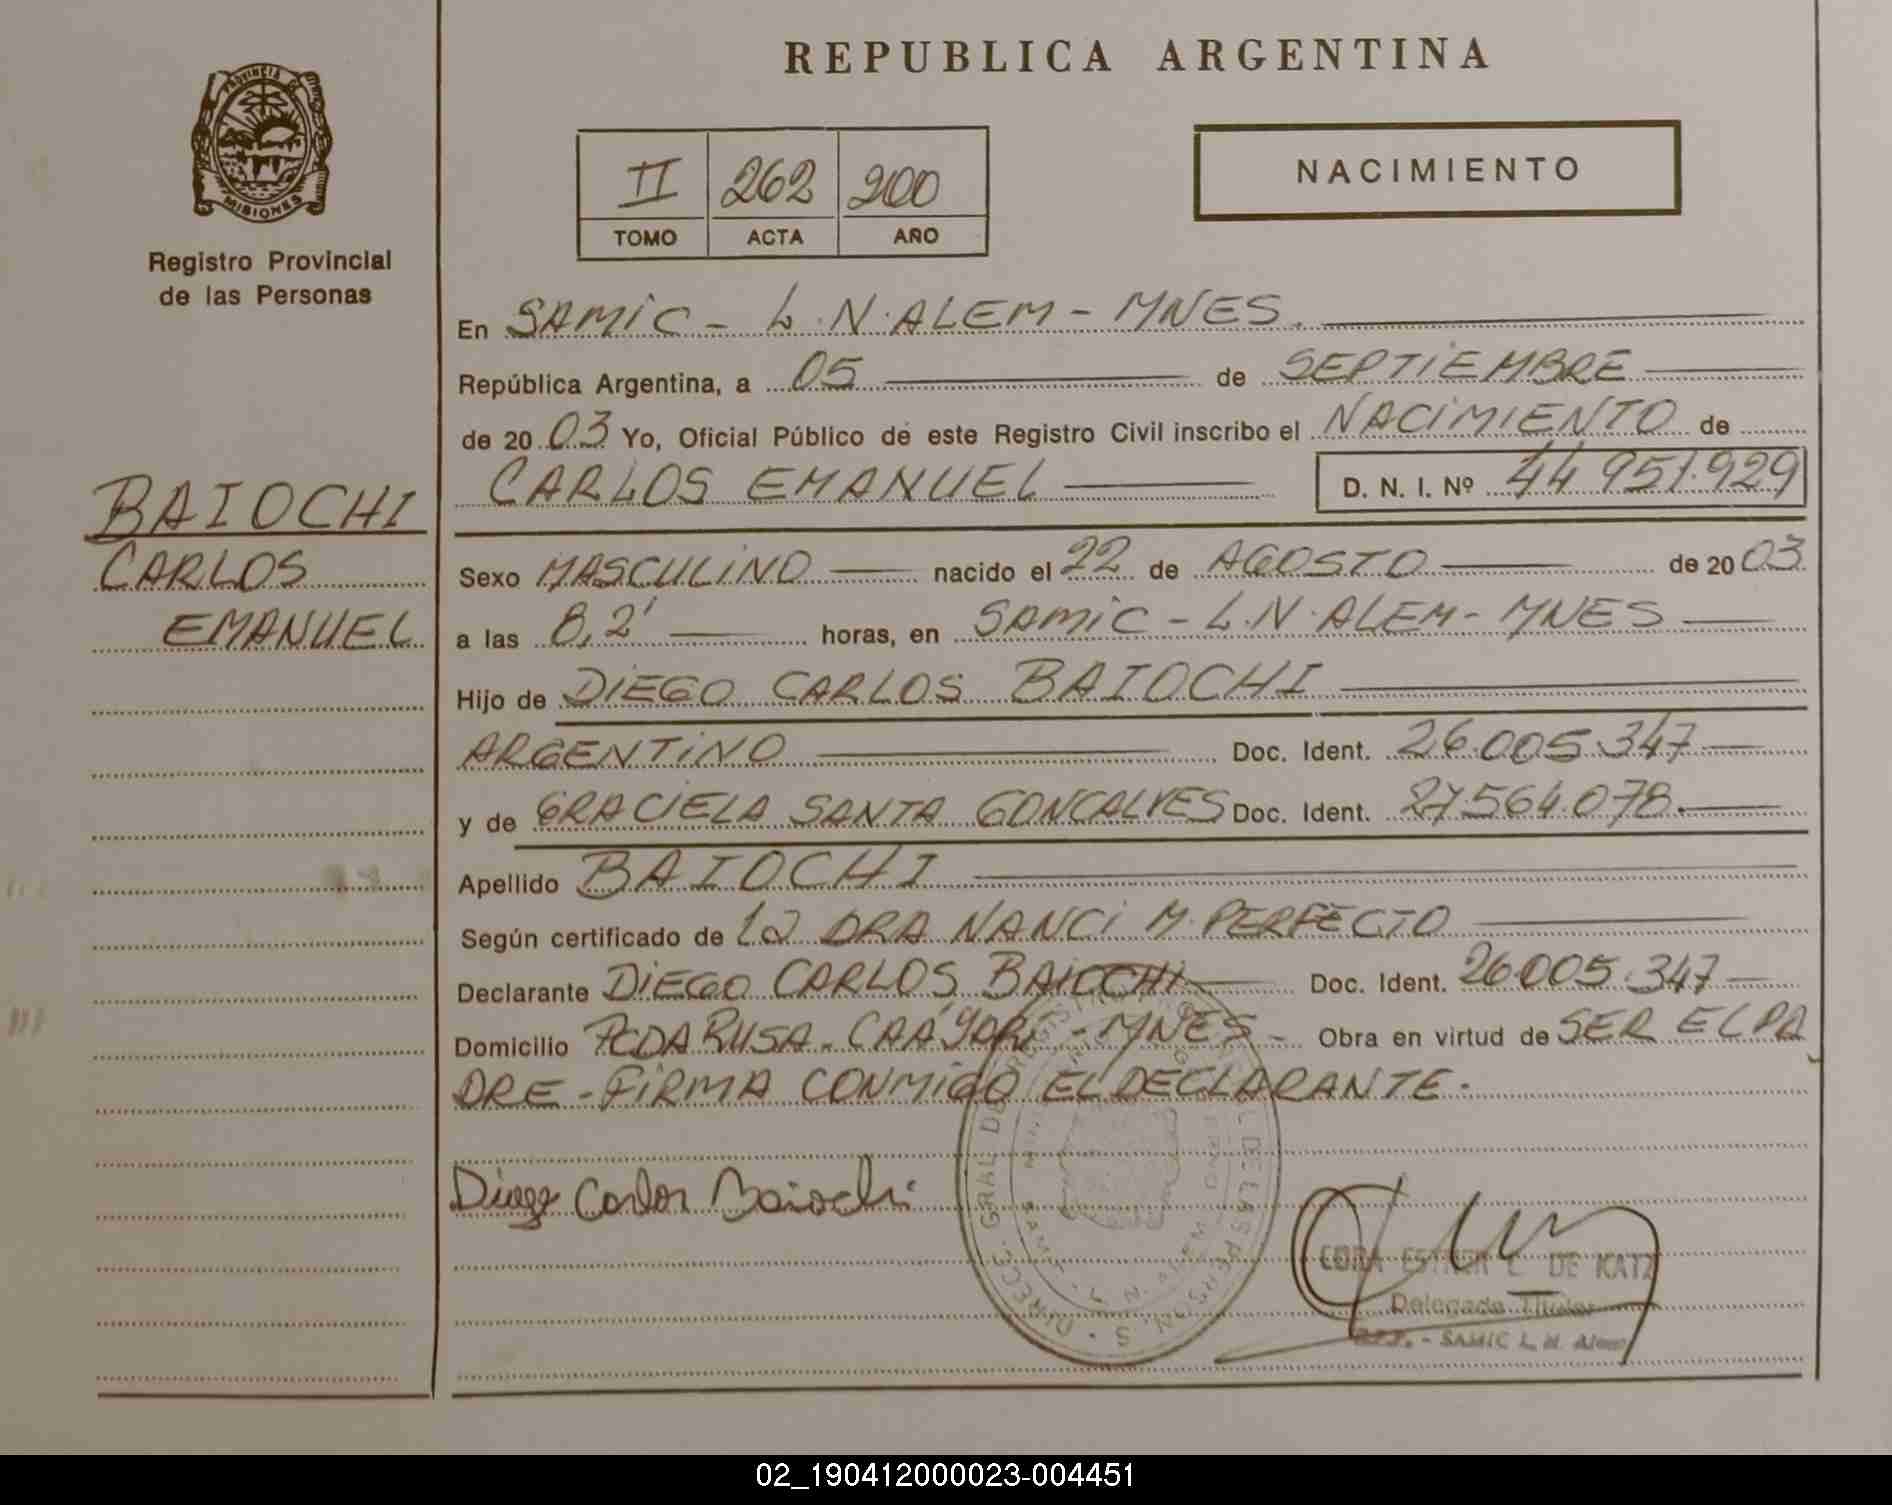 REPUBLICA ARGENTINA
PROVINCIA DE
MISIONES
Registro Provincial
de las Personas
II 262 200
TOMO ACTA AÑO
NACIMIENTO
En SAMIC - L.N.ALEM - MNES.
República Argentina, a 05 de SEPTIEMBRE
de 2003 Yo, Oficial Público de este Registro Civil inscribo el NACIMIENTO de
CARLOS EMANUEL D. N. I. Nº 44.951.929
BAIOCHI
CARLOS
EMANUEL
Sexo MASCULINO nacido el 22 de AGOSTO de 2003
a las 8,2' horas, en SAMIC - L.N.ALEM - MNES
Hijo de DIEGO CARLOS BAIOCHI
ARGENTINO Doc. Ident. 26.005.347
y de GRACIELA SANTA GONCALVES Doc. Ident. 27.564.078.
Apellido BAIOCHI
Según certificado de la DRA NANCI M. PERFECTO
Declarante DIEGO CARLOS BAIOCHI Doc. Ident. 26.005.347
Domicilio PCDA RUSA - CAA YARI - MNES - Obra en virtud de SER EL PA
DRE - FIRMA CONMIGO EL DECLARANTE.
Diego Carlos Baiochi
ESTHER DE KATZ
Delegada Titular
- SAMIC L. N. Alem
02_190412000023-004451